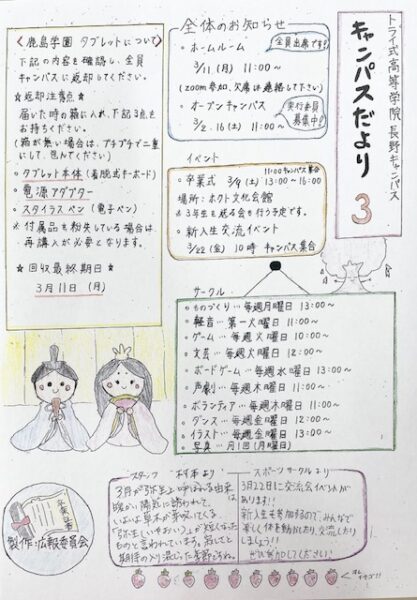 トライ式高等学院長野キャンパス
キャンパスだより 3
全体のお知らせ
・ホームルーム
全員出席です!
3/11(月) 11:00〜
(zoom参加、欠席は連絡して下さい)
・オープンキャンパス
実行委員
募集中!
3/2、16(土) 11:00〜
〈鹿島学園 タブレットについて〉
下記の内容を確認し、全員
キャンパスに返却してください。
☆返却注意点☆
届いた時の箱に入れ、下記3点を
お持ちください。
(箱が無い場合は、プチプチで二重
にして、包んでください)
・タブレット本体(着脱式キーボード)
・電源アダプター
・スタイラスペン(電子ペン)
※付属品を紛失している場合は
再購入が必要となります。
☆回収最終期日☆
3月11日(月)
イベント
11:00キャンパス集合
・卒業式 3/9(土) 13:00〜16:00
場所:ホクト文化会館
※3年生を送る会も行う予定です。
・新入生交流イベント
3/22(金) 10時 キャンパス集合
サークル
・ものづくり…毎週月曜日 13:00〜
・軽音…第一火曜日 11:00〜
・ゲーム…毎週火曜日 10:00〜
・文芸…毎週火曜日 12:00〜
・ボードゲーム…毎週水曜日 13:00〜
・声劇…毎週木曜日 11:00〜
・ボランティア…毎週木曜日 11:00〜
・ダンス…毎週金曜日 12:00〜
・イラスト…毎週金曜日 13:00〜
・写真…月1回(月曜日)
スタッフ 村本より
3月が弥生と呼ばれる由来は
暖かい陽気に誘われて、
いよいよ草木が芽吹いてくる
「弥生(いやおい)」が短くなった
ものと言われています。寂しさと
期待の入り混じった季節ですね。
スポーツサークルより
3月22日に交流会イベントが
あります!!
新入生も参加するので、みんなで
楽しく体を動かしたり、交流したり
しましょう!!
ぜひ参加してください!
卒業証書
製作:広報委員会
イチゴ!!